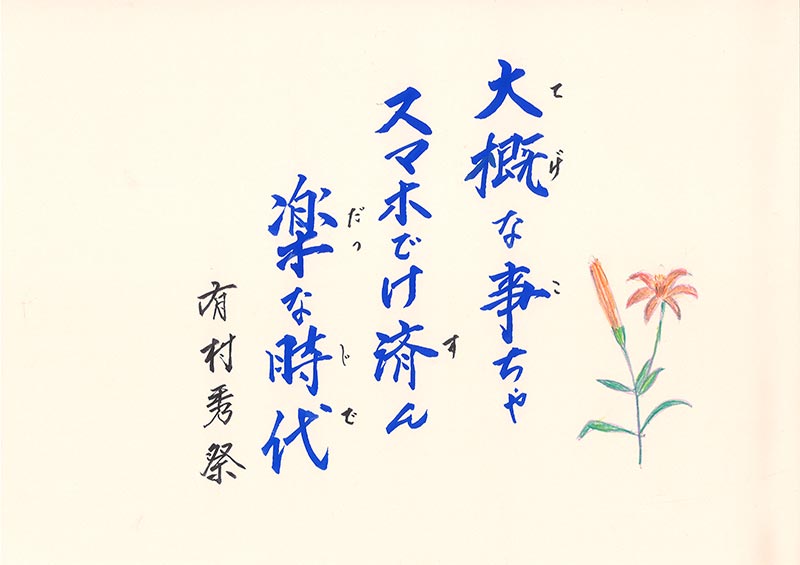 てげ こ
大概な事ちゃ
す
スマホでけ済ん
だっ じで
楽な時代
有村秀祭